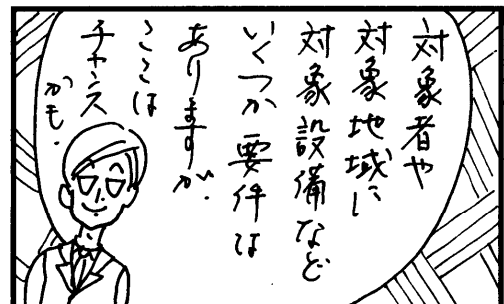 対象者や
対象地域に
対象設備など
いくつか要件は
ありますが、
ここは
チャンス
かも。